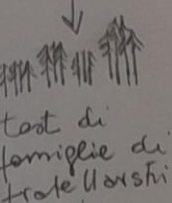 test di
famiglie di
fratellastri